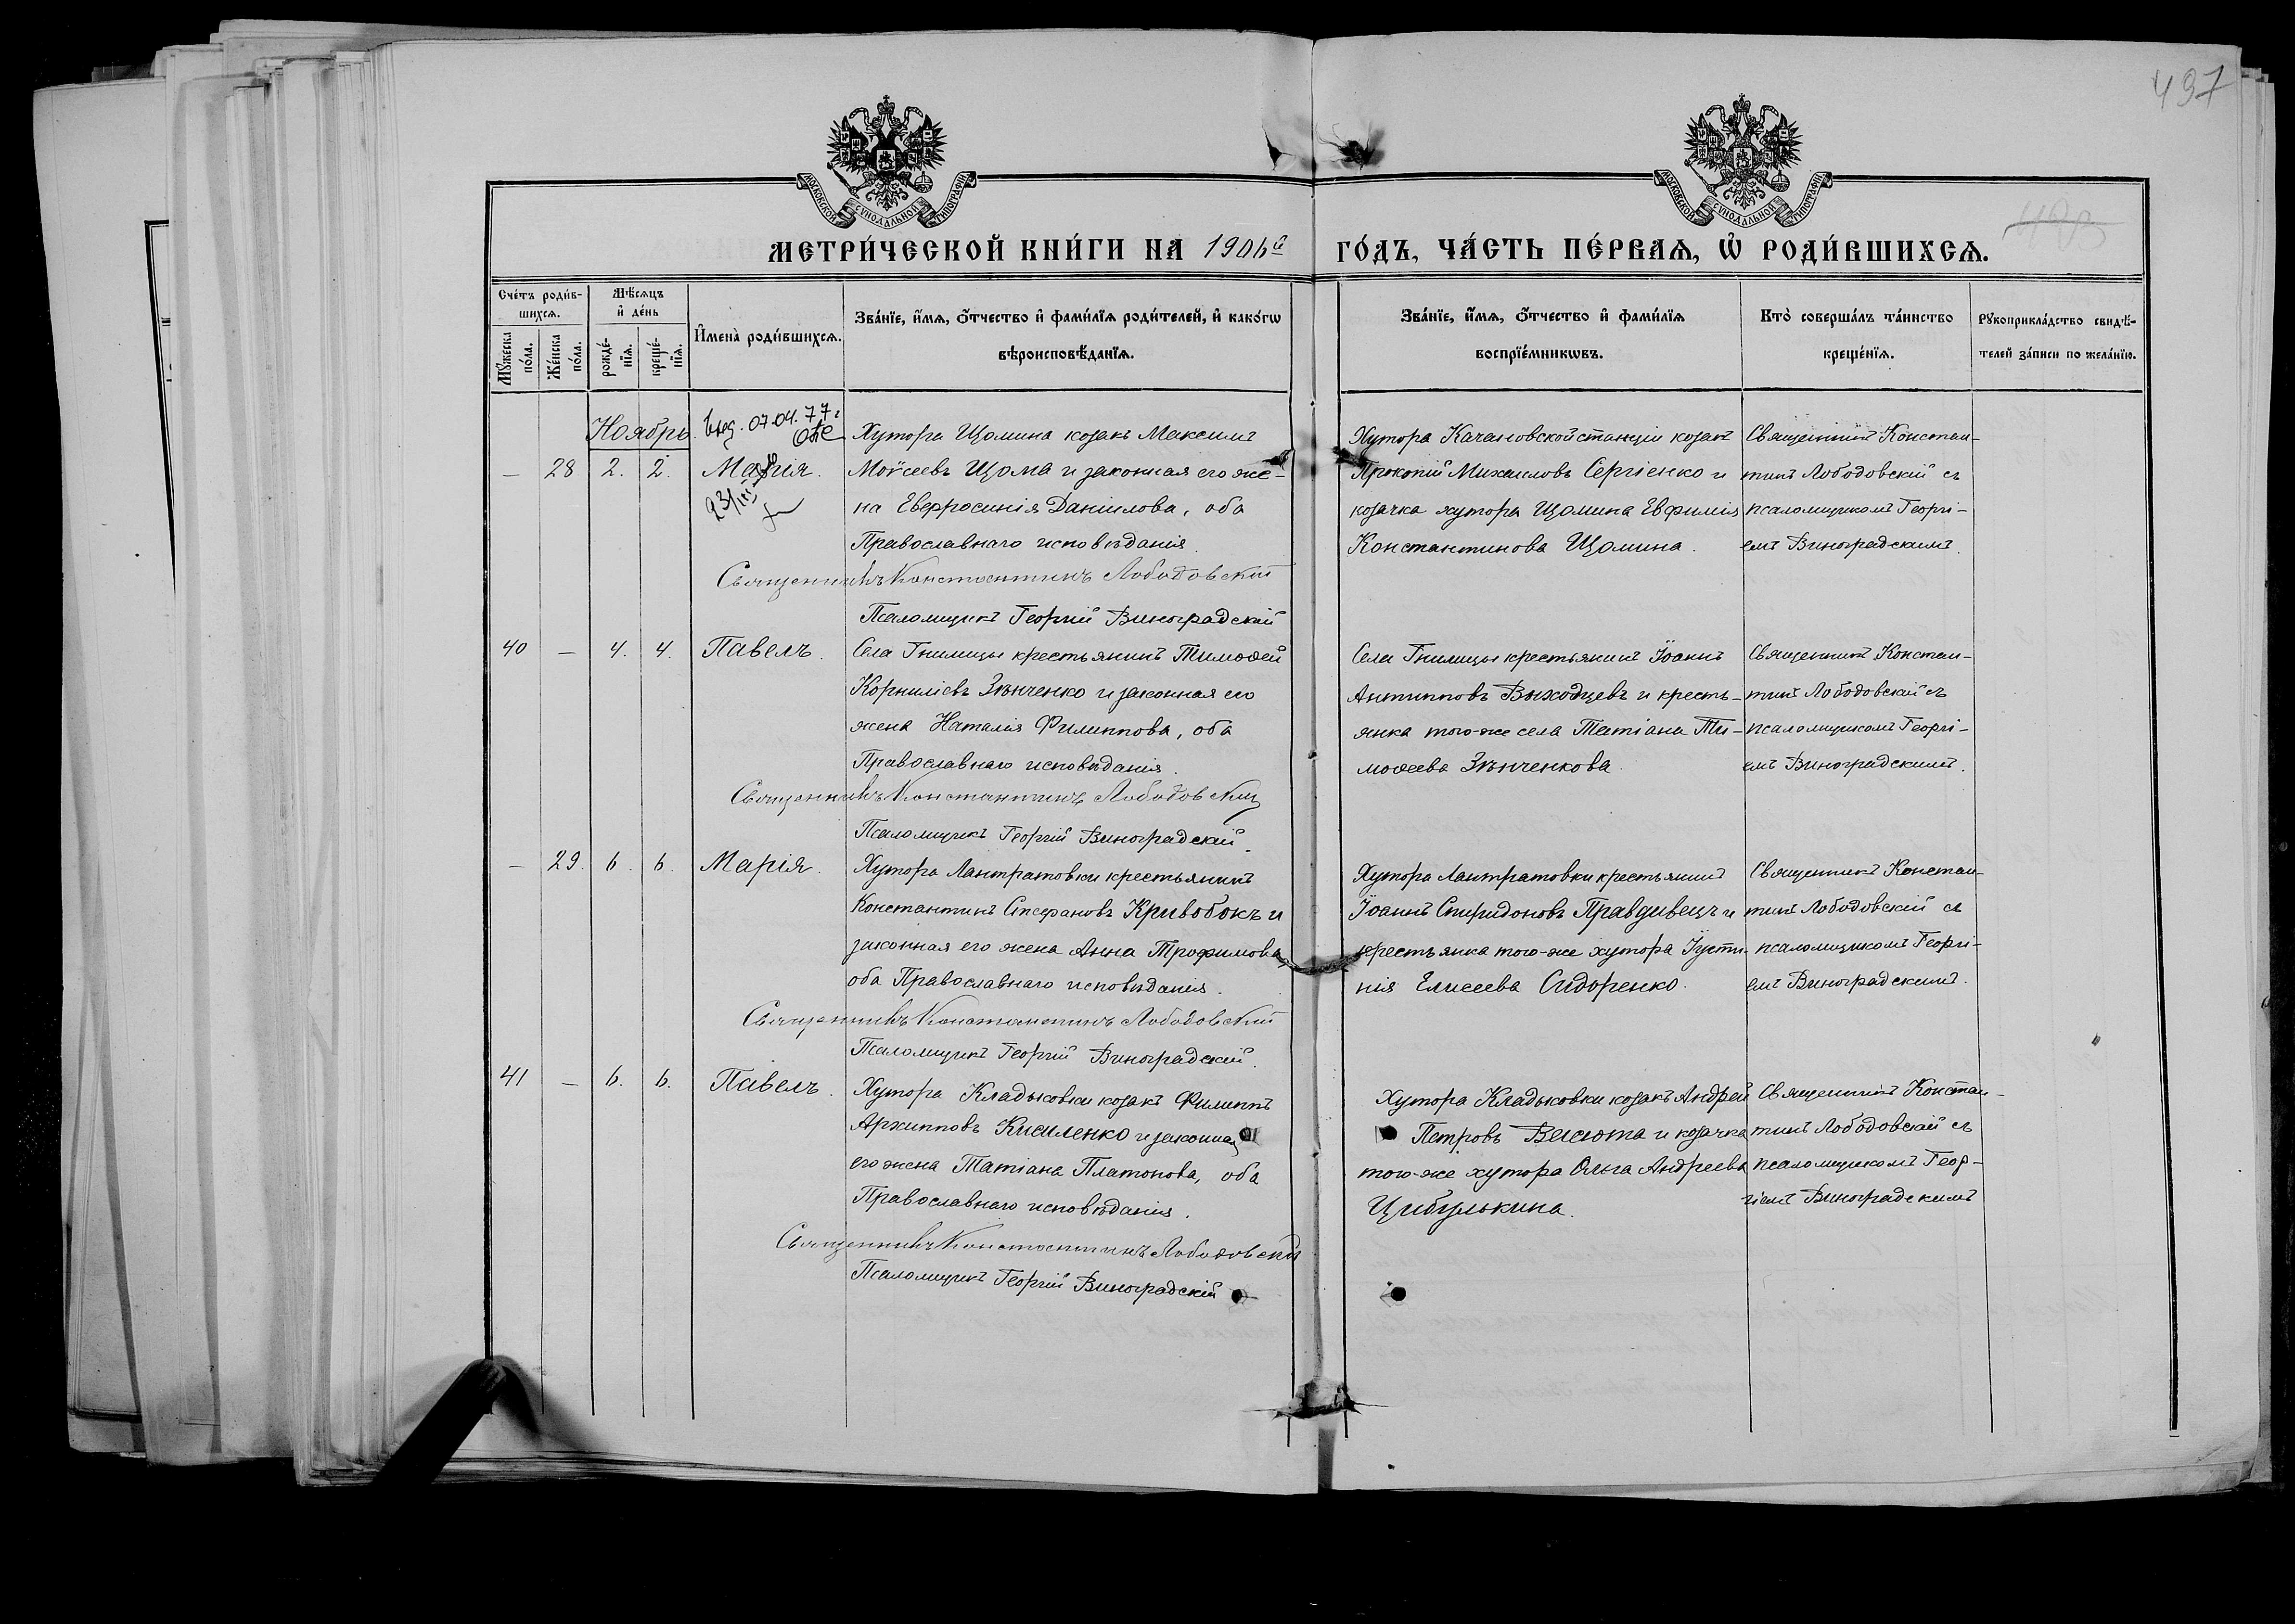 497
МОСКОВСКОЙ СѴНОДАЛЬНОЙ ТИПОГРАФІИ
МОСКОВСКОЙ СѴНОДАЛЬНОЙ ТИПОГРАФІИ
МЕТРИ́ЧЕСКОЙ КНИ́ГИ НА 1906й ГО́ДЪ, ЧА́СТЬ ПЕ́РВАѦ, Ѡ҆ РОДИ́ВШИХСѦ.
Сче́тъ роди́в-
шихсѧ.
Мꙋ́жеска по́ла.
Же́нска по́ла.
Мѣ́сѧцъ
и҆ де́нь
рожде́-
нїѧ.
креще́-
нїѧ.
И҆мена̀ роди́вшихсѧ.
Зва́нїе, и҆́мѧ, ѻ҆́тчество и҆ фами́лїѧ роди́телей, и҆ како́гѡ
вѣроисповѣ́данїѧ.
Зва́нїе, и҆́мѧ, ѻ҆́тчество и҆ фами́лїѧ
воспрїе́мникѡвъ.
Кто̀ соверша́лъ та́инство
креще́нїѧ.
Рꙋкоприкла́дство свидѣ́-
телей за́писи по жела́нїю.
Ноябрь.
07.04.77г
— 28 2. 2. Марія.
Хутора Щомина козакъ Максимъ
Моѵсеевъ Щома и законная его же-
на Евфросинія Даніилова, оба
Православнаго исповѣданія.
Священникъ Константинъ Лободовскій
Псаломщикъ Георгій Виноградскій
Хутора Качановской станціи козакъ
Прокопій Михаиловъ Сергіенко и
козачка хутора Щомина Евфимія
Константинова Щомина.
Священникъ Констан-
тинъ Лободовскій съ
псаломщикомъ Георгі-
емъ Виноградскимъ.
40 — 4. 4. Павелъ.
Села Гнилицы крестьянинъ Тимоѳей
Корниліевъ Зѣнченко и законная его
жена Наталія Филиппова, оба
Православнаго исповѣданія.
Священникъ Константинъ Лободовскій
Псаломщикъ Георгій Виноградскій.
Села Гнилицы крестьянинъ Іоаннъ
Антипповъ Выходцевъ и кресть-
янка того-же села Татіана Ти-
моѳеева Зѣнченкова.
Священникъ Констан-
тинъ Лободовскій съ
псаломщикомъ Георгі-
емъ Виноградскимъ.
— 29. 6. 6. Марія.
Хутора Лантратовки крестьянинъ
Константинъ Стефановъ Кривобокъ и
законная его жена Анна Трофимова
оба Православнаго исповѣданія.
Священникъ Константинъ Лободовскій
Псаломщикъ Георгій Виноградскій.
Хутора Лантратовки крестьянинъ
Іоаннъ Спиридоновъ Правдивецъ и
крестьянка того-же хутора Іусти-
нія Елисеева Сидоренко.
Священникъ Констан-
тинъ Лободовскій съ
псаломщикомъ Георгі-
емъ Виноградскимъ.
41 — 6. 6. Павелъ.
Хутора Кладьковки козакъ Филиппъ
Архипповъ Кисиленко и законная
его жена Татіана Платонова, оба
Православнаго исповѣданія.
Священникъ Константинъ Лободовскій
Псаломщикъ Георгій Виноградскій
Хутора Кладьковки козакъ Андрей
Петровъ Висюта и козачка
того-же хутора Ольга Андреева
Цибулькина.
Священникъ Констан-
тинъ Лободовскій съ
псаломщикомъ Геор-
гіемъ Виноградскимъ